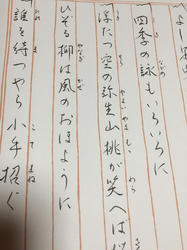 四季の詠もいろいろに
浮たつ空の弥生山桃が笑へば
ひぞる柳は風のおほように
誰を待つやら小手招ぐ